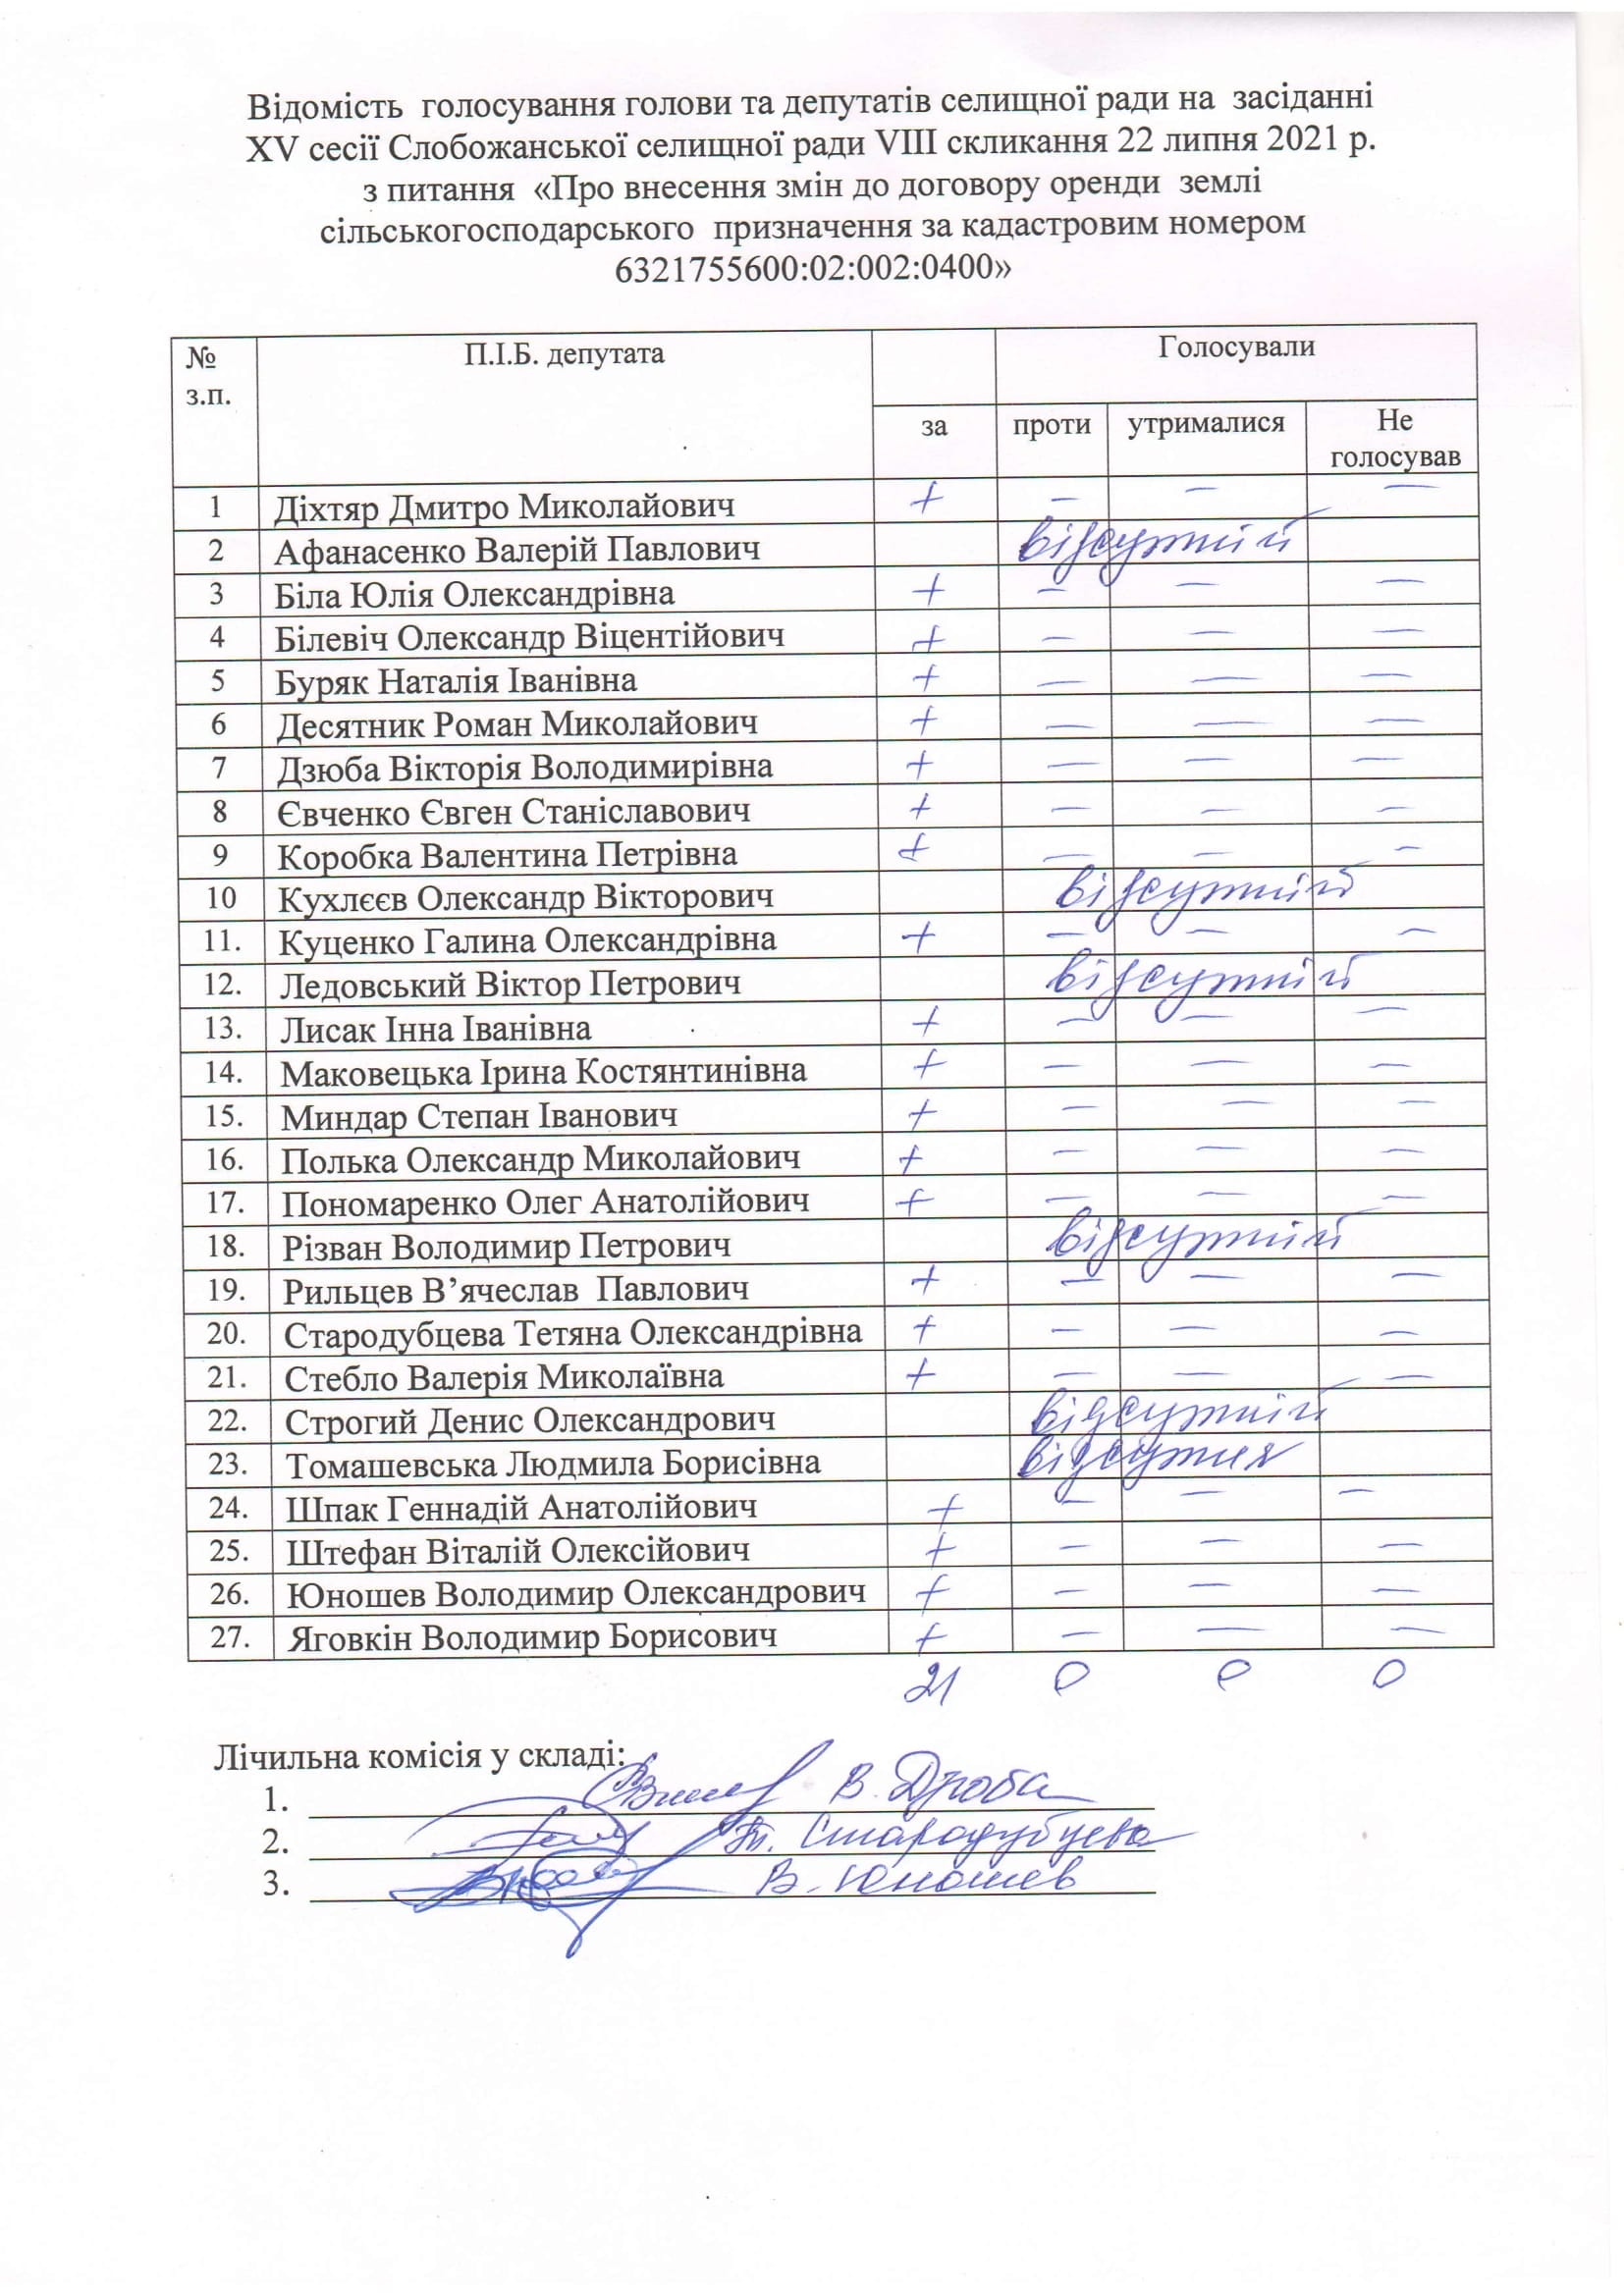 Відомість голосування голови та депутатів селищної ради на засіданні
XV сесії Слобожанської селищної ради VIII скликання 22 липня 2021 р.
з питання «Про внесення змін до договору оренди землі
сільськогосподарського призначення за кадастровим номером
6321755600:02:002:0400»
№ з.п. П.І.Б. депутата Голосували
за проти утрималися Не голосував
1 Діхтяр Дмитро Миколайович + — — —
2 Афанасенко Валерій Павлович відсутній
3 Біла Юлія Олександрівна + — — —
4 Білевіч Олександр Віцентійович + — — —
5 Буряк Наталія Іванівна + — — —
6 Десятник Роман Миколайович + — — —
7 Дзюба Вікторія Володимирівна + — — —
8 Євченко Євген Станіславович + — — —
9 Коробка Валентина Петрівна + — — —
10 Кухлєєв Олександр Вікторович відсутній
11. Куценко Галина Олександрівна + — — —
12. Ледовський Віктор Петрович відсутній
13. Лисак Інна Іванівна + — — —
14. Маковецька Ірина Костянтинівна + — — —
15. Миндар Степан Іванович + — — —
16. Полька Олександр Миколайович + — — —
17. Пономаренко Олег Анатолійович + — — —
18. Різван Володимир Петрович відсутній
19. Рильцев В’ячеслав Павлович + — — —
20. Стародубцева Тетяна Олександрівна + — — —
21. Стебло Валерія Миколаївна + — — —
22. Строгий Денис Олександрович відсутній
23. Томашевська Людмила Борисівна відсутня
24. Шпак Геннадій Анатолійович + — — —
25. Штефан Віталій Олексійович + — — —
26. Юношев Володимир Олександрович + — — —
27. Яговкін Володимир Борисович + — — —
21 0 0 0
Лічильна комісія у складі:
1. В.
2. Т. Стародубцева
3. В. Юношев